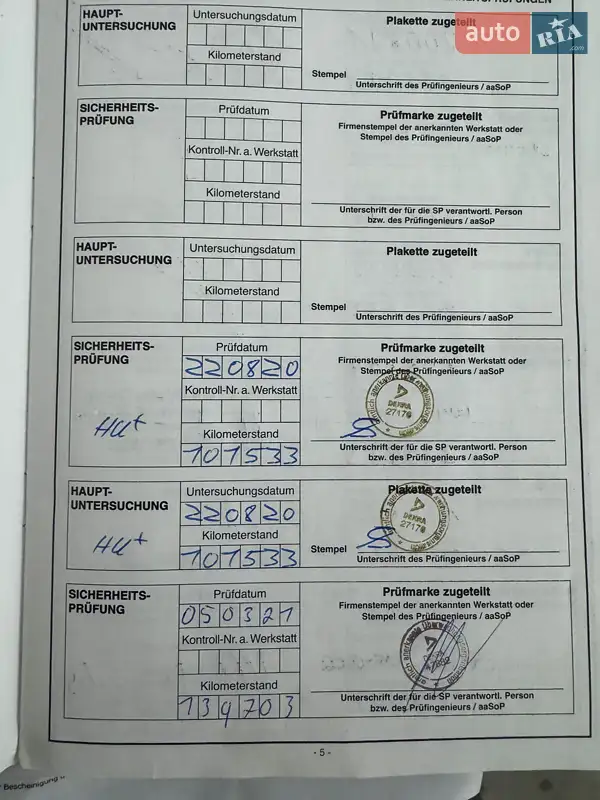 auto RIA .com
HAUPT-
UNTERSUCHUNG
Untersuchungsdatum
Kilometerstand
Plakette zugeteilt
Stempel
Unterschrift des Prüfingenieurs / aaSoP
SICHERHEITS-
PRÜFUNG
Prüfdatum
Kontroll-Nr. a. Werkstatt
Kilometerstand
Prüfmarke zugeteilt
Firmenstempel der anerkannten Werkstatt oder
Stempel des Prüfingenieurs / aaSoP
Unterschrift der für die SP verantwortl. Person
bzw. des Prüfingenieurs / aaSoP
HAUPT-
UNTERSUCHUNG
Untersuchungsdatum
Kilometerstand
Plakette zugeteilt
Stempel
Unterschrift des Prüfingenieurs / aaSoP
SICHERHEITS-
PRÜFUNG
HU+
Prüfdatum
220820
Kontroll-Nr. a. Werkstatt
Kilometerstand
101533
Prüfmarke zugeteilt
Firmenstempel der anerkannten Werkstatt oder
Stempel des Prüfingenieurs / aaSoP
DEKRA
27170
Unterschrift der für die SP verantwortl. Person
bzw. des Prüfingenieurs / aaSoP
HAUPT-
UNTERSUCHUNG
HU+
Untersuchungsdatum
220820
Kilometerstand
101533
Plakette zugeteilt
DEKRA
27170
Stempel
Unterschrift des Prüfingenieurs / aaSoP
SICHERHEITS-
PRÜFUNG
Prüfdatum
050321
Kontroll-Nr. a. Werkstatt
Kilometerstand
139703
Prüfmarke zugeteilt
Firmenstempel der anerkannten Werkstatt oder
Stempel des Prüfingenieurs / aaSoP
Unterschrift der für die SP verantwortl. Person
bzw. des Prüfingenieurs / aaSoP
- 5 -
Bescheinigung